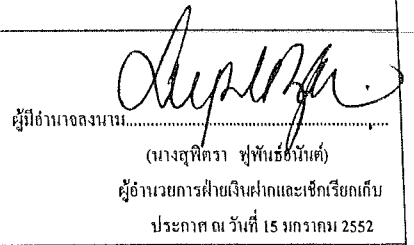 ผู้มีอำนาจลงนาม
(นางสุพิตรา ฟูพันธ์อนันต์)
ผู้อำนวยการฝ่ายเงินฝากและเช็คเรียกเก็บ
ประกาศ ณ วันที่ 15 มกราคม 2552